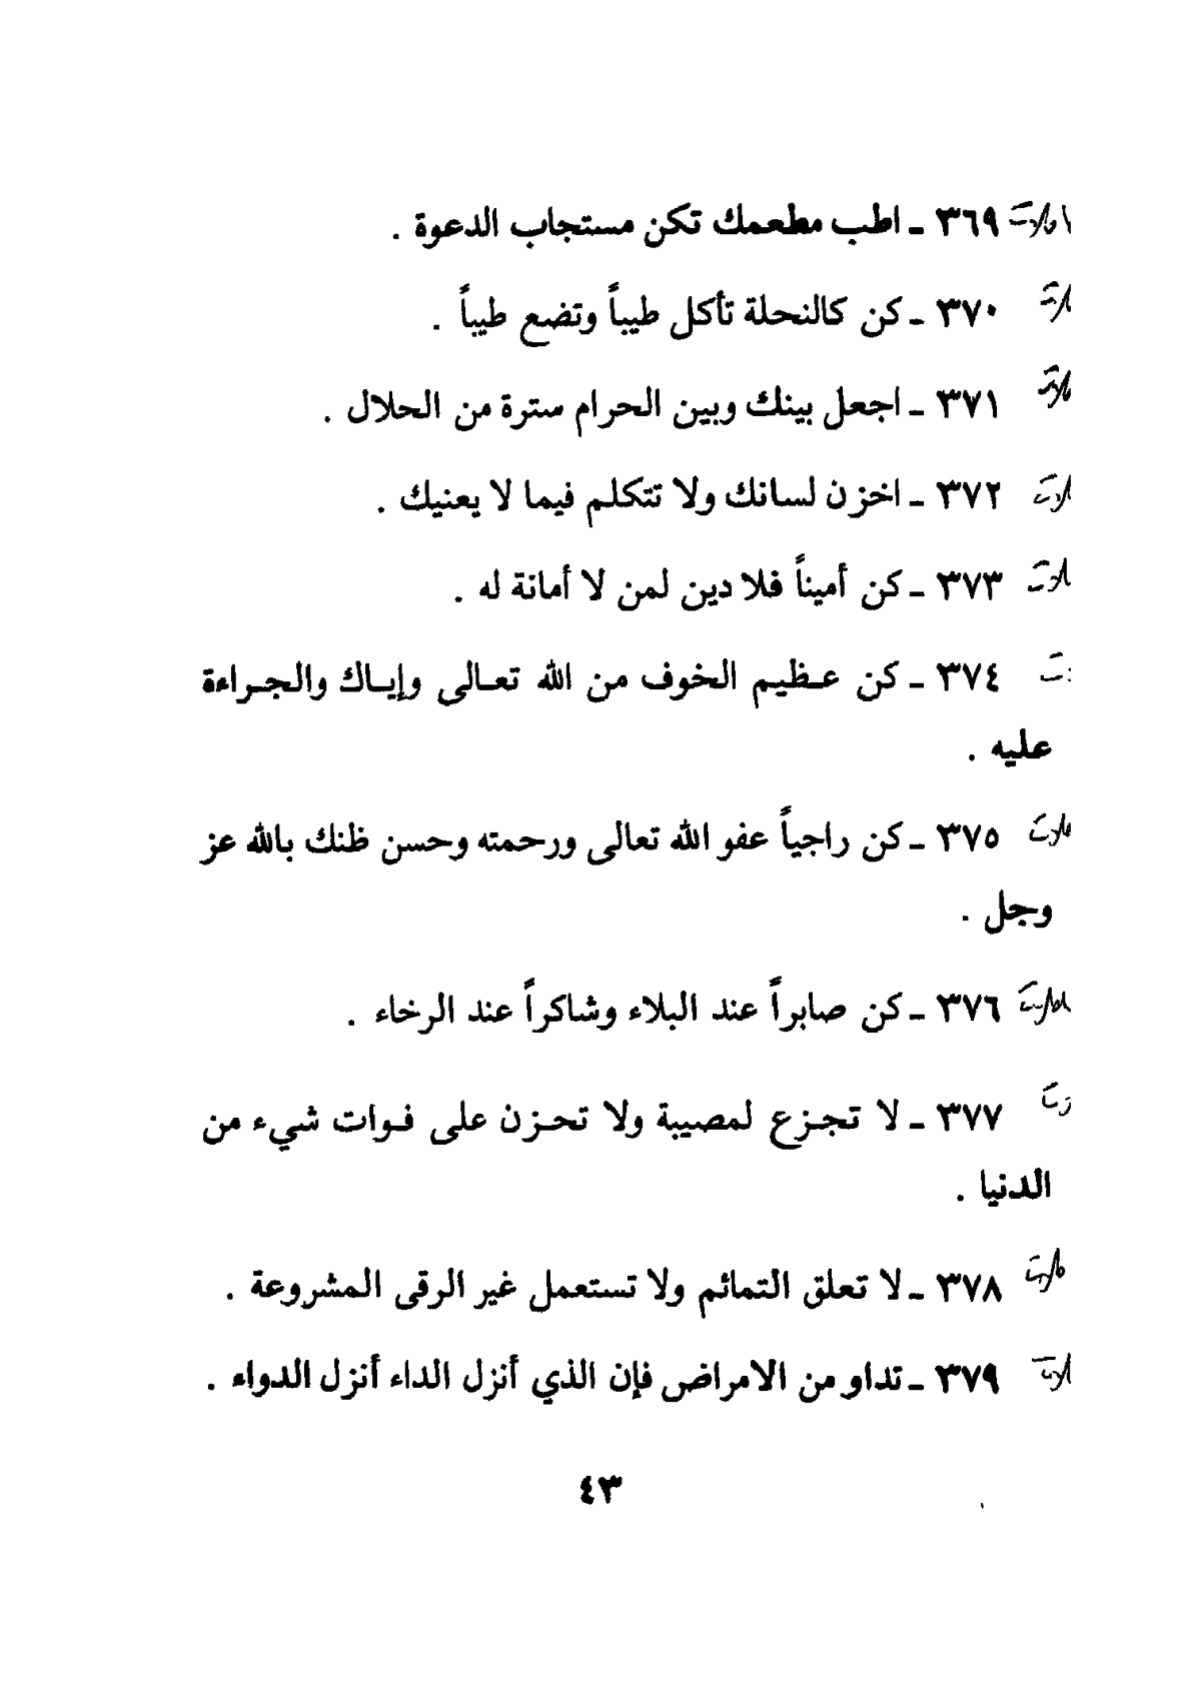 ٣٦٩ ـ اطب مطعمك تكن مستجاب الدعوة .
٣٧٠ ـ كن كالنحلة تأكل طيباً وتضع طيباً .
٣٧١ ـ اجعل بينك وبين الحرام سترة من الحلال .
٣٧٢ ـ اخزن لسانك ولا تتكلم فيما لا يعنيك .
٣٧٣ ـ كن أميناً فلا دين لمن لا أمانة له .
٣٧٤ ـ كن عـظيـم الخوف من الله تعـالى وإيـاك والجـراءة
عليه .
٣٧٥ ـ كن راجياً عفو الله تعالى ورحمته وحسن ظنك بالله عز
وجل .
٣٧٦ ـ كن صابراً عند البلاء وشاكراً عند الرخاء .
٣٧٧ ـ لا تجـزع لمصيبة ولا تحـزن على فـوات شيء من
الدنيا .
٣٧٨ ـ لا تعلق التمائم ولا تستعمل غير الرقى المشروعة .
٣٧٩ ـ تداو من الامراض فإن الذي أنزل الداء أنزل الدواء .
٤٣